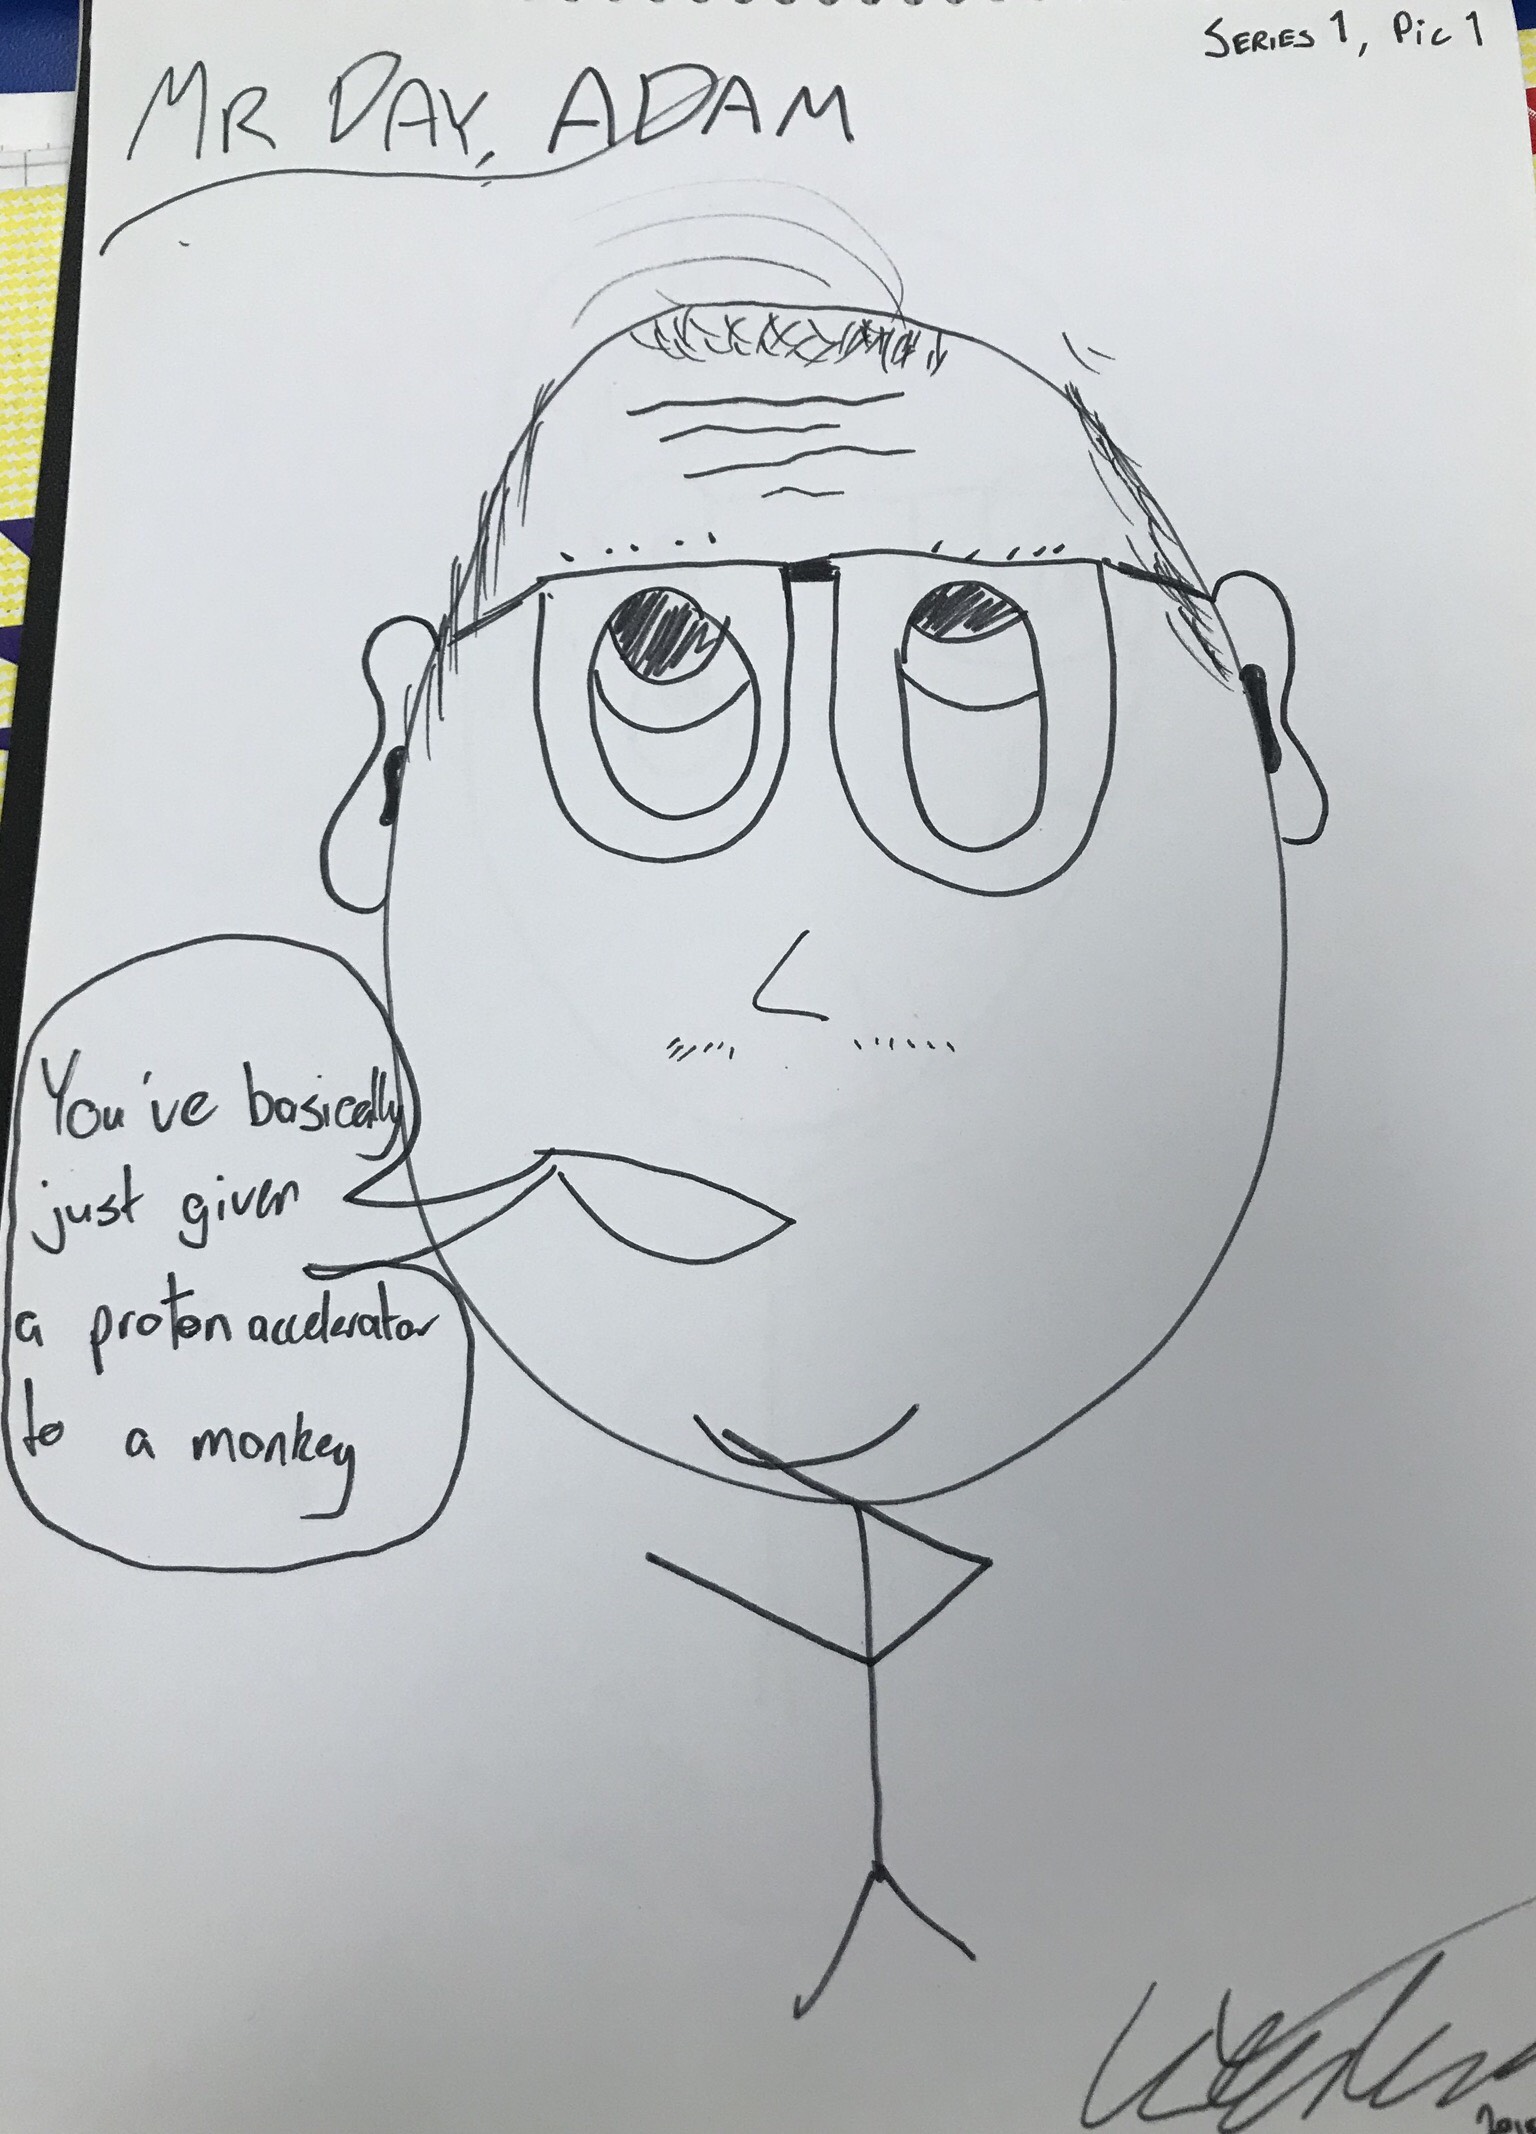 SERIES 1, Pic 1
MR DAY, ADAM
You've basically
just given
a proton accelerator
to a monkey